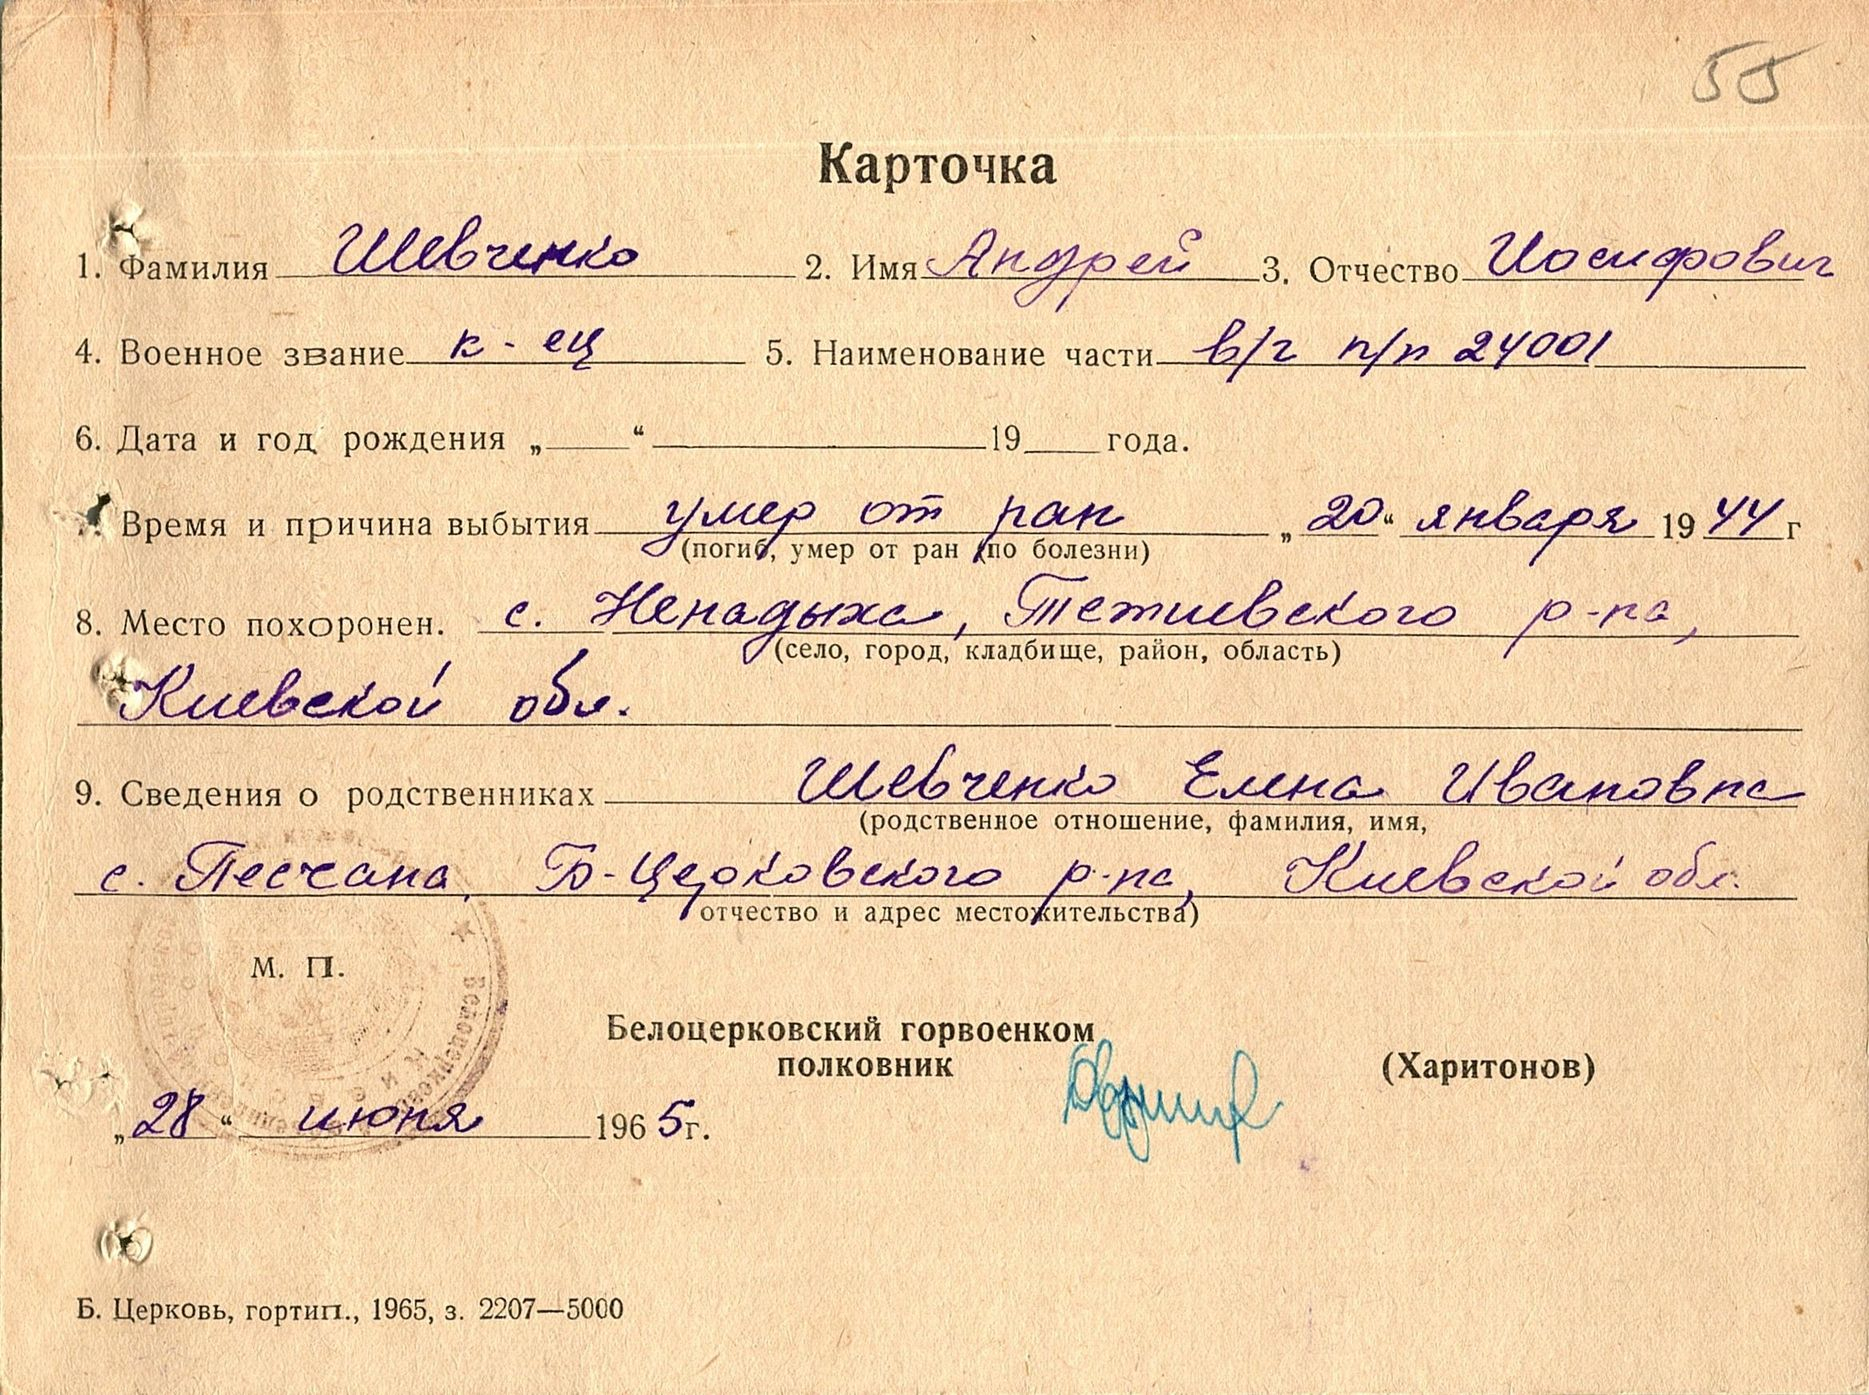 55
Карточка
1. Фамилия Шевченко 2. Имя Андрей 3. Отчество Иосифович
4. Военное звание к-ец 5. Наименование части в/ч п/п 24001
6. Дата и год рождения „ “ 19 года.
7. Время и причина выбытия умер от ран „20“ января 1944 г
(погиб, умер от ран (по болезни)
8. Место похоронен. с. Ненадыха, Тетиевского р-на,
(село, город, кладбище, район, область)
Киевской обл.
9. Сведения о родственниках Шевченко Елена Ивановна
(родственное отношение, фамилия, имя,
с. Песчана, Б-Церковского р-на, Киевской обл.
отчество и адрес местожительства)
М. П.
Белоцерковский горвоенком
полковник (Харитонов)
„28“ июня 1965г.
Б. Церковь, гортип., 1965, з. 2207—5000